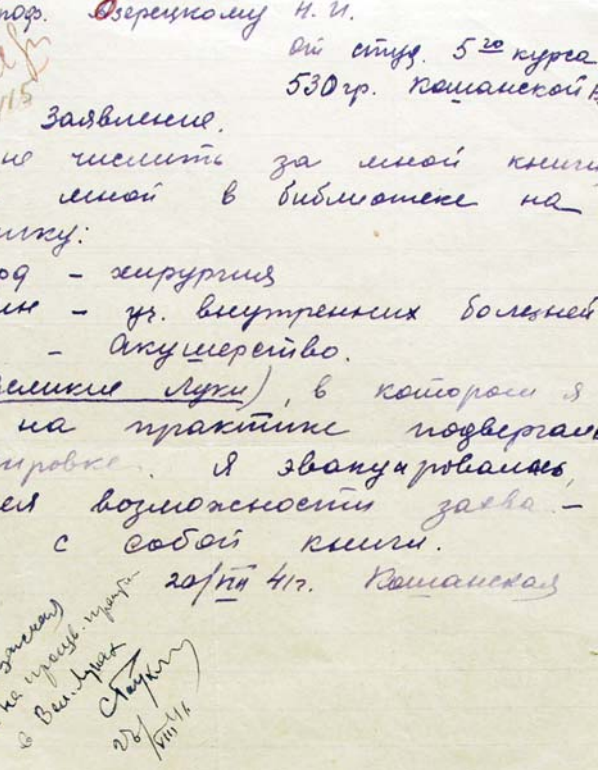 Озерецкому Н. И.
от студ. 5го курса
530 гр. Кошанской
Заявление.
не числить за мной книги
мной в библиотеке на
– хирургия
– уч. внутренних болезней
– Акушерство.
Великие Луки), в котором я
на практике подвергал
ировке. Я эвакуировалась,
ея возможности захва–
с собой книги.
20/VIII 41г. Кошанская
в Вел. Луках